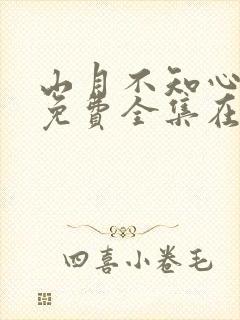 山月不知心
免費全集在
四喜小卷毛